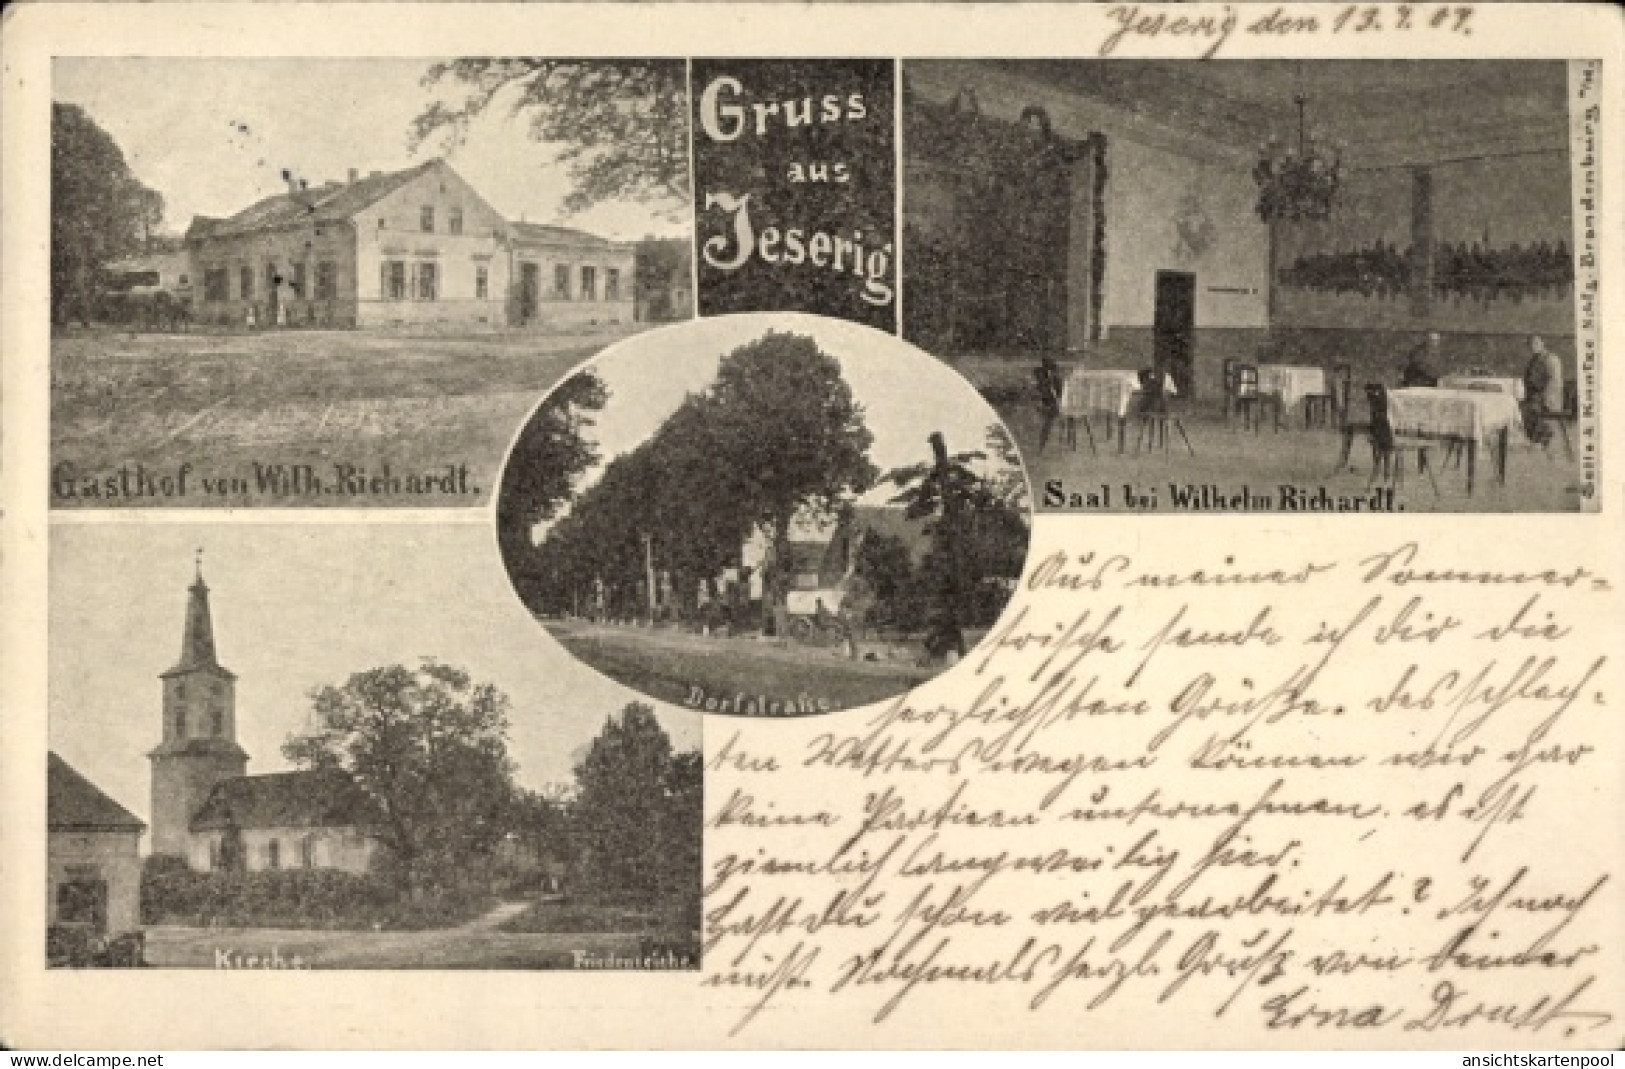 Jeserig den 13.7.07.
Gruss
aus
Jeserig
Gasthof von Wilh. Richardt.
Saal bei Wilhelm Richardt.
Brandenburg a/H.
Dorfstraße.
Kirche.
Friedenseiche.
Aus meiner Sommer-
frische sende ich dir die
herzlichsten Grüße. Des schlech-
ten Wetters wegen können wir gar
keine Partieen unternehmen, es ist
ziemlich langweilig hier.
Hast du schon viel gearbeitet? Ich noch
nicht. Nochmals herzl. Gruß von deiner
Erna
delcampe.net
ansichtskartenpool